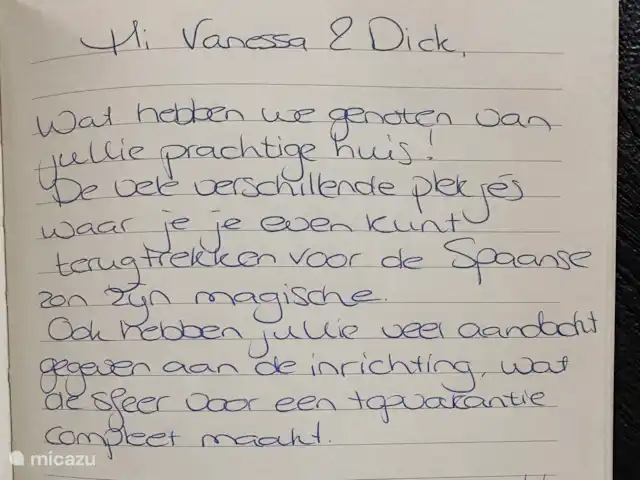 Hi Vanessa & Dick,
Wat hebben we genoten van
jullie prachtige huis!
De vele verschillende plekjes
waar je je even kunt
terugtrekken voor de Spaanse
zon zijn magische.
Ook hebben jullie veel aandacht
gegeven aan de inrichting, wat
de sfeer voor een topvakantie
compleet maakt.
micazu